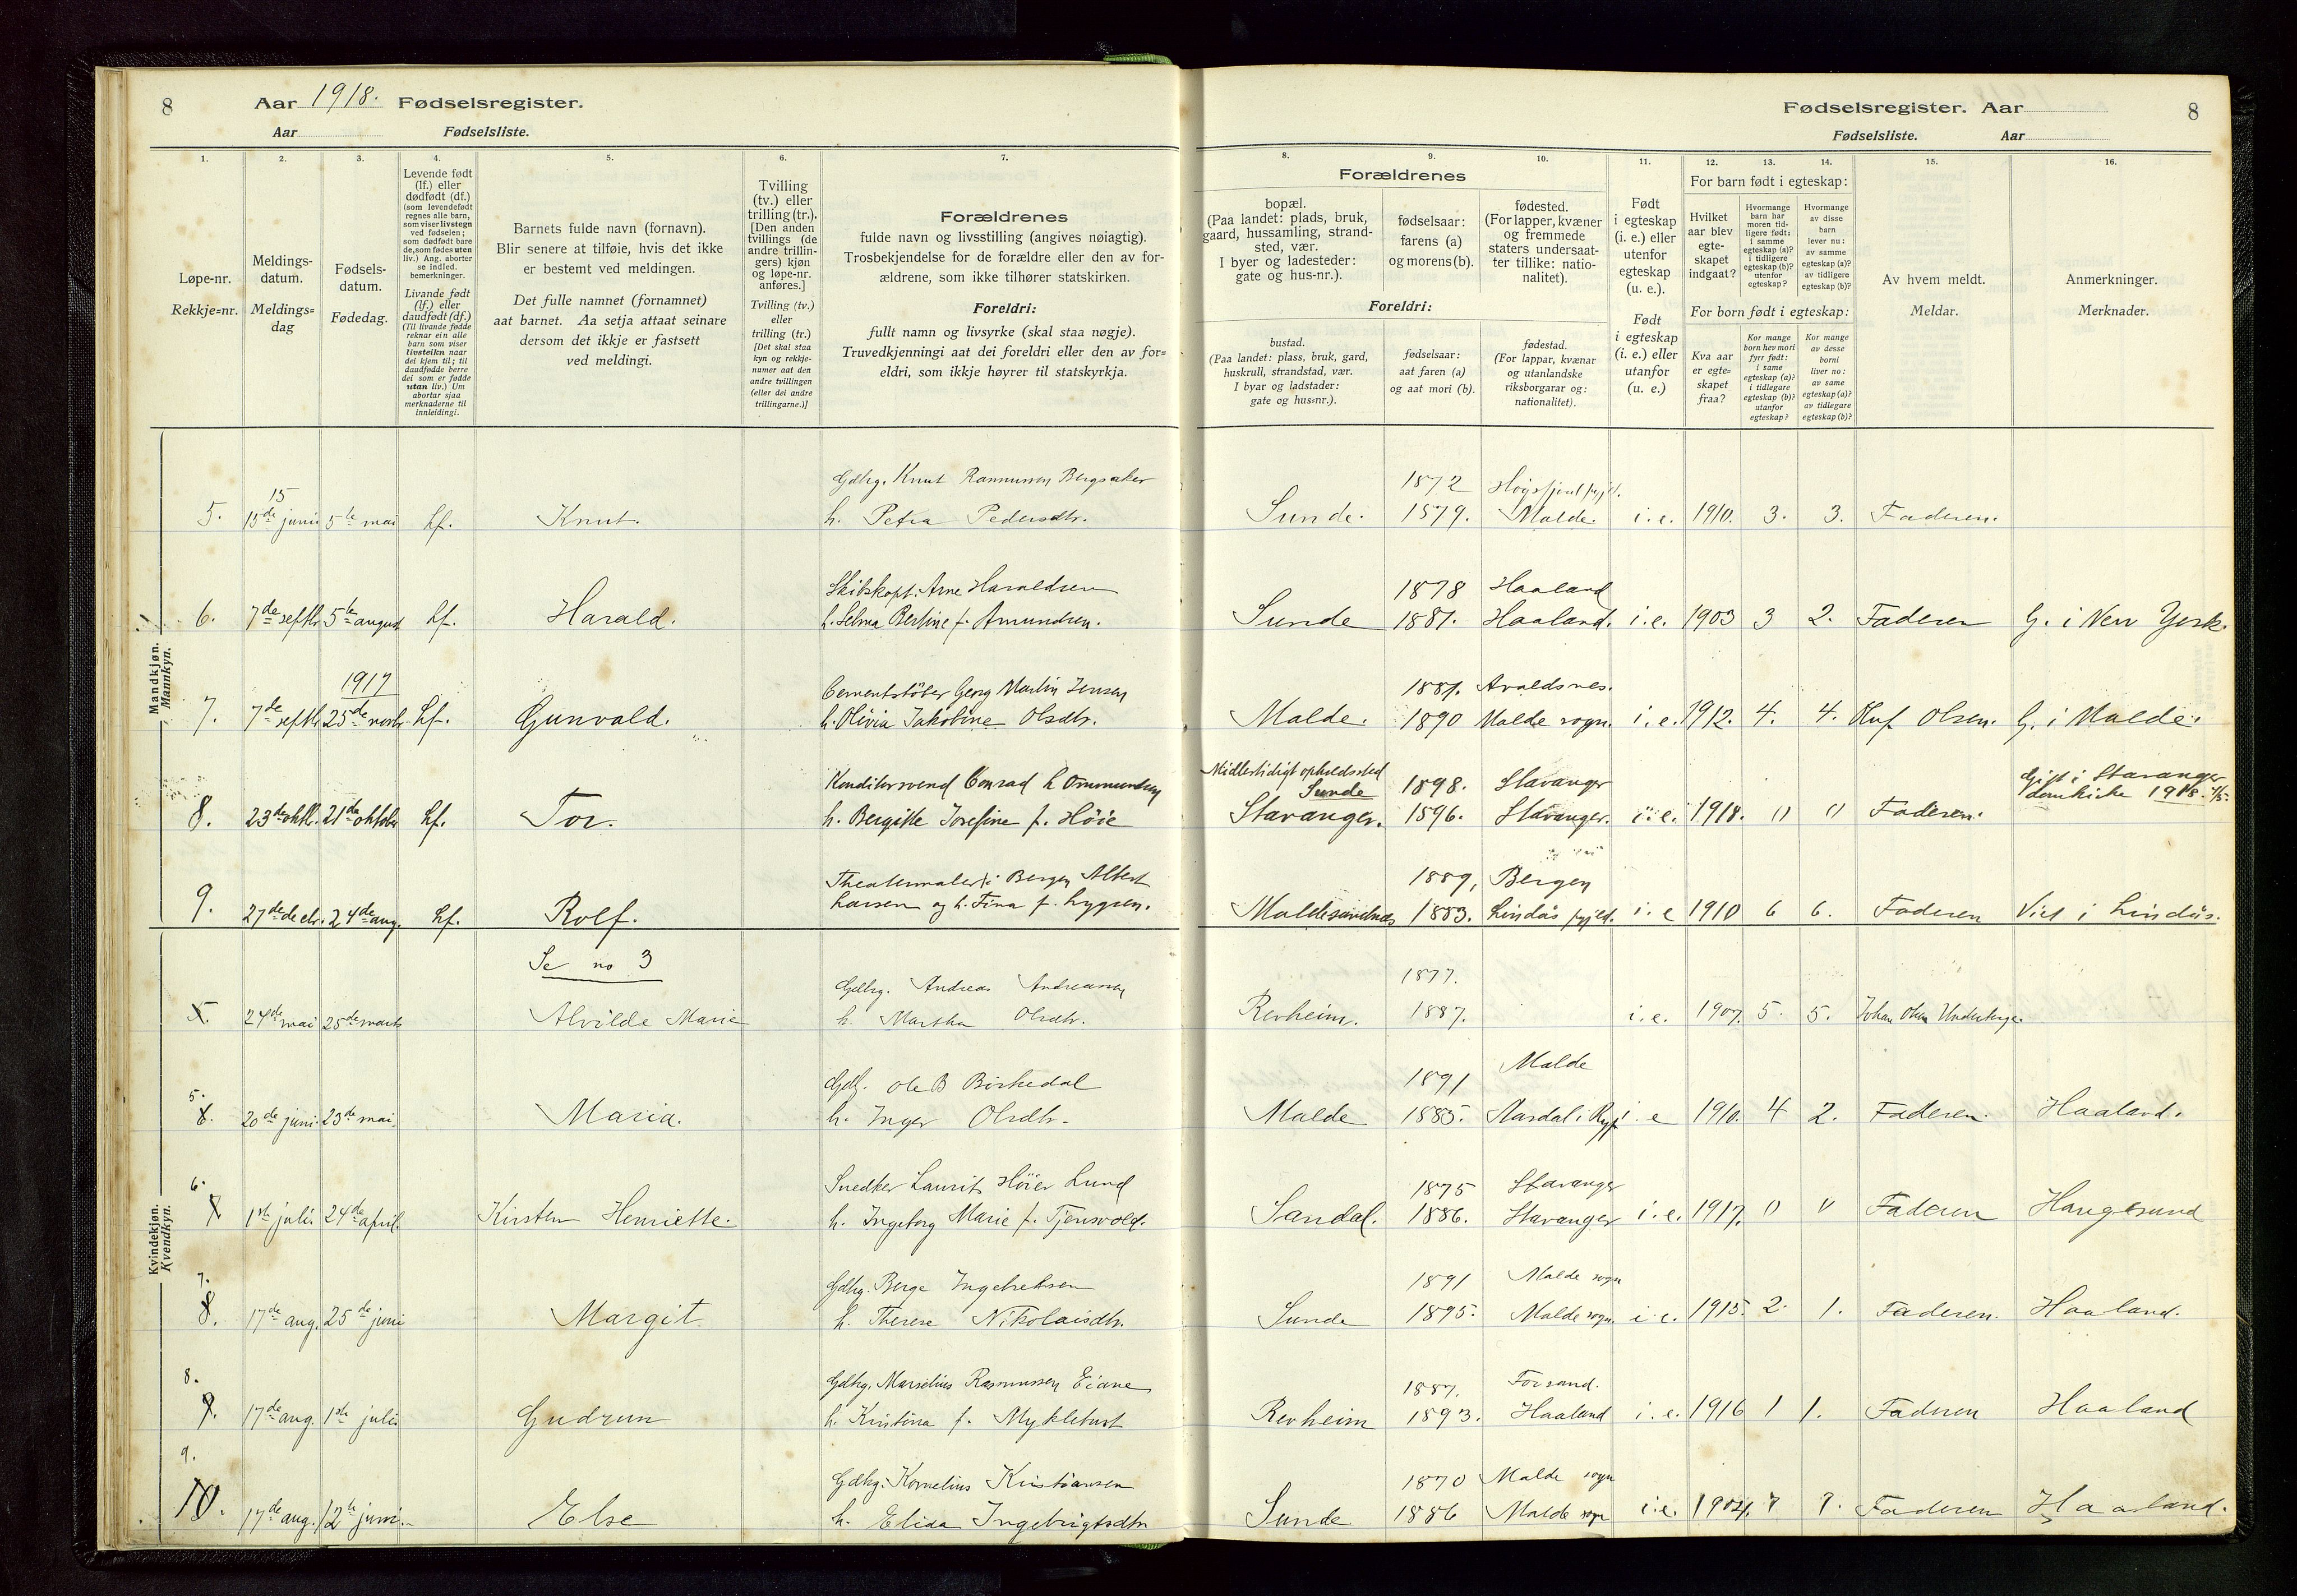 8
Aar 1918. Fødselsregister.
Aar Fødselsliste.
Fødselsregister. Aar
8
Fødselsliste. Aar
1. 2. 3. 4. 5. 6. 7.
Løpe-nr.
Rekkje=nr.
Meldings-
datum.
Meldings=
dag
Fødsels-
datum.
Fødedag.
Levende født
(lf.) eller
dødfødt (df.)
(som levendefødt
regnes alle barn,
som viser livstegn
ved fødselen;
som dødfødt bare
de, som fødes uten
liv.) Ang. aborter
se indled.
bemerkninger.
Livande født
(lf.) eller
daudfødt (df.)
(Til livande fødde
reknar ein alle
barn som viser
livsteikn naar
dei kjem til; til
daudfødde berre
dei som er fødde
utan liv.) Um
abortar sjaa
merknaderne til
innleidingi.
Barnets fulde navn (fornavn).
Blir senere at tilføie, hvis det ikke
er bestemt ved meldingen.
Det fulle namnet (fornamnet)
aat barnet. Aa setja attaat seinare
dersom det ikkje er fastsett
ved meldingi.
Tvilling
(tv.) eller
trilling (tr.).
[Den anden
tvillings (de
andre trillin-
gers) kjøn
og løpe-nr.
anføres.]
Tvilling (tv.)
eller
trilling (tr.)
[Det skal staa
kyn og rekkje-
numer aat den
andre tvillingen
(eller dei andre
trillingarne.)]
Forældrenes
fulde navn og livsstilling (angives nøiagtig).
Trosbekjendelse for de forældre eller den av for-
ældrene, som ikke tilhører statskirken.
Foreldri:
fullt namn og livsyrke (skal staa nøgje).
Truvedkjenningi aat dei foreldri eller den av for=
eldri, som ikkje høyrer til statskyrkja.
8. 9. 10. 11. 12. 13. 14. 15. 16.
Forældrenes
bopæl.
(Paa landet: plads, bruk,
gaard, hussamling, strand-
sted, vær.
I byer og ladesteder:
gate og hus-nr.).
fødselsaar:
farens (a)
og morens (b).
fødested.
(For lapper, kvæner
og fremmede
staters undersaat-
ter tillike: natio-
nalitet).
Foreldri:
bustad.
(Paa landet: plass, bruk, gard,
huskrull, strandstad, vær.
I byar og ladstader:
gate og hus=nr.).
fødselsaar:
aat faren (a)
og aat mori (b).
fødestad.
(For lappar, kvænar
og utanlandske
riksborgarar og:
nationalitet).
Født
i egteskap
(i. e.) eller
utenfor
egteskap
(u. e.).
Født
i egteskap
(i. e.) eller
utanfor
(u. e.)
For barn født i egteskap:
Hvilket
aar blev
egte-
skapet
indgaat?
Hvormange
barn har
moren tid-
ligere født:
i samme
egteskap (a)?
i tidligere
egteskap (b)?
utenfor
egteskap?
Hvormange
av disse
barn
lever nu:
av samme
egteskap (a)?
av tidligere
egteskap (b)?
For born født i egteskap:
Kva aar
er egte=
skapet
fraa?
Kor mange
born hev mori
fyrr født:
i same
egteskap (a)?
i tidlegare
egteskap (b)?
utanfor
egteskap?
Kor mange
av desse
borni
liver no:
av same
egteskap (a)?
av tidlegare
egteskap (b)?
Av hvem meldt.
Meldar.
Anmerkninger.
Merknader.
Mandkjøn.
Mannkyn.
15 Gdbg. Knut Rasmussen Bergsaker 1872
5. 15de juni 5te mai Lf. Knut. h. Petra Pedersdtr. Sunde. 1879. Malde. i. e. 1910. 3. 3. Faderen.
Skibskapt. Arne Haraldsen 1878 Haaland
6. 7de septbr 5te august Lf. Harald. h. Selma Bertine f. Amundsen. Sunde 1881. Haaland. i. e. 1903 3 2. Faderen G. i New York.
1917 Cementstöber Georg Martin Jensen 1881. Avaldsnes.
7. 7de septbr 25de novbr. Lf. Gunvald. h. Olivia Jakobine Olsdtr. Malde. 1890 Malde sogn. i. e. 1912. 4. 4. Olsen. G. i Malde.
Konditorsvend Conrad L Ommundsen Midlertidigt opholdssted Sunde 1898. Stavanger Gift i Stavanger domkirke 1918.
8. 23de oktbr. 21de oktober Lf. Tor. h. Bergitte Josefine f. Höie Stavanger. 1896. Stavanger. i. e. 1918. 0 0 Faderen.
Theatermaler i Bergen Albert 1889, Bergen
9. 27de decbr. 24de aug. Lf. Rolf. Larsen og h. Fina f. Lygren. Maldesandnes 1883. Lindås pgjld. i. e 1910 6 6. Faderen Viet i Lindås.
Kvindekjøn.
Kvendkyn.
Se no 3
Gdbg. Andreas Andreassen 1877.
5. 24de mai 25de marts Alvilde Marie h. Martha Olsdtr. Revheim. 1887. i. e. 1907. 5. 5. Johan Olsen
5. Gdbg. Ole B Birkedal 1891 Malde
6. 20de juni. 23de mai. Maria. h. Inger Olsdtr. Malde 1885. Aardal i Ryf. i. e 1910. 4 2. Faderen. Haaland.
6. Snedker Laurits Höier Lund 1875 Stavanger
7 1ste juli. 24de april. Kirsten Henriette. h. Ingeborg Marie f. Tjensvold. Sandal. 1886. Stavanger i. e. 1917. 0 0 Faderen Haugesund
7. Gdbg. Berge Ingebretsen 1891 Malde sogn
8. 17de aug. 25de juni Margit h. Therese Nikolaisdtr. Sunde 1895. Malde sogn. i. e. 1915. 2. 1. Faderen. Haaland.
8. Gdbg. Marselius Rasmussen Eiane 1887. Forsand.
9. 17de aug. 1ste juli Gudrun h. Kristina f. Myklebust Revheim 1893. Haaland i. e. 1916 1 1. Faderen Haaland
9. Gdbg. Kornelius Kristiansen 1870 Malde sogn
10. 17de aug. 12te juni. Else h. Elida Ingebrigtsdtr Sunde 1886 Malde sogn i. e. 1904. Faderen Haaland.